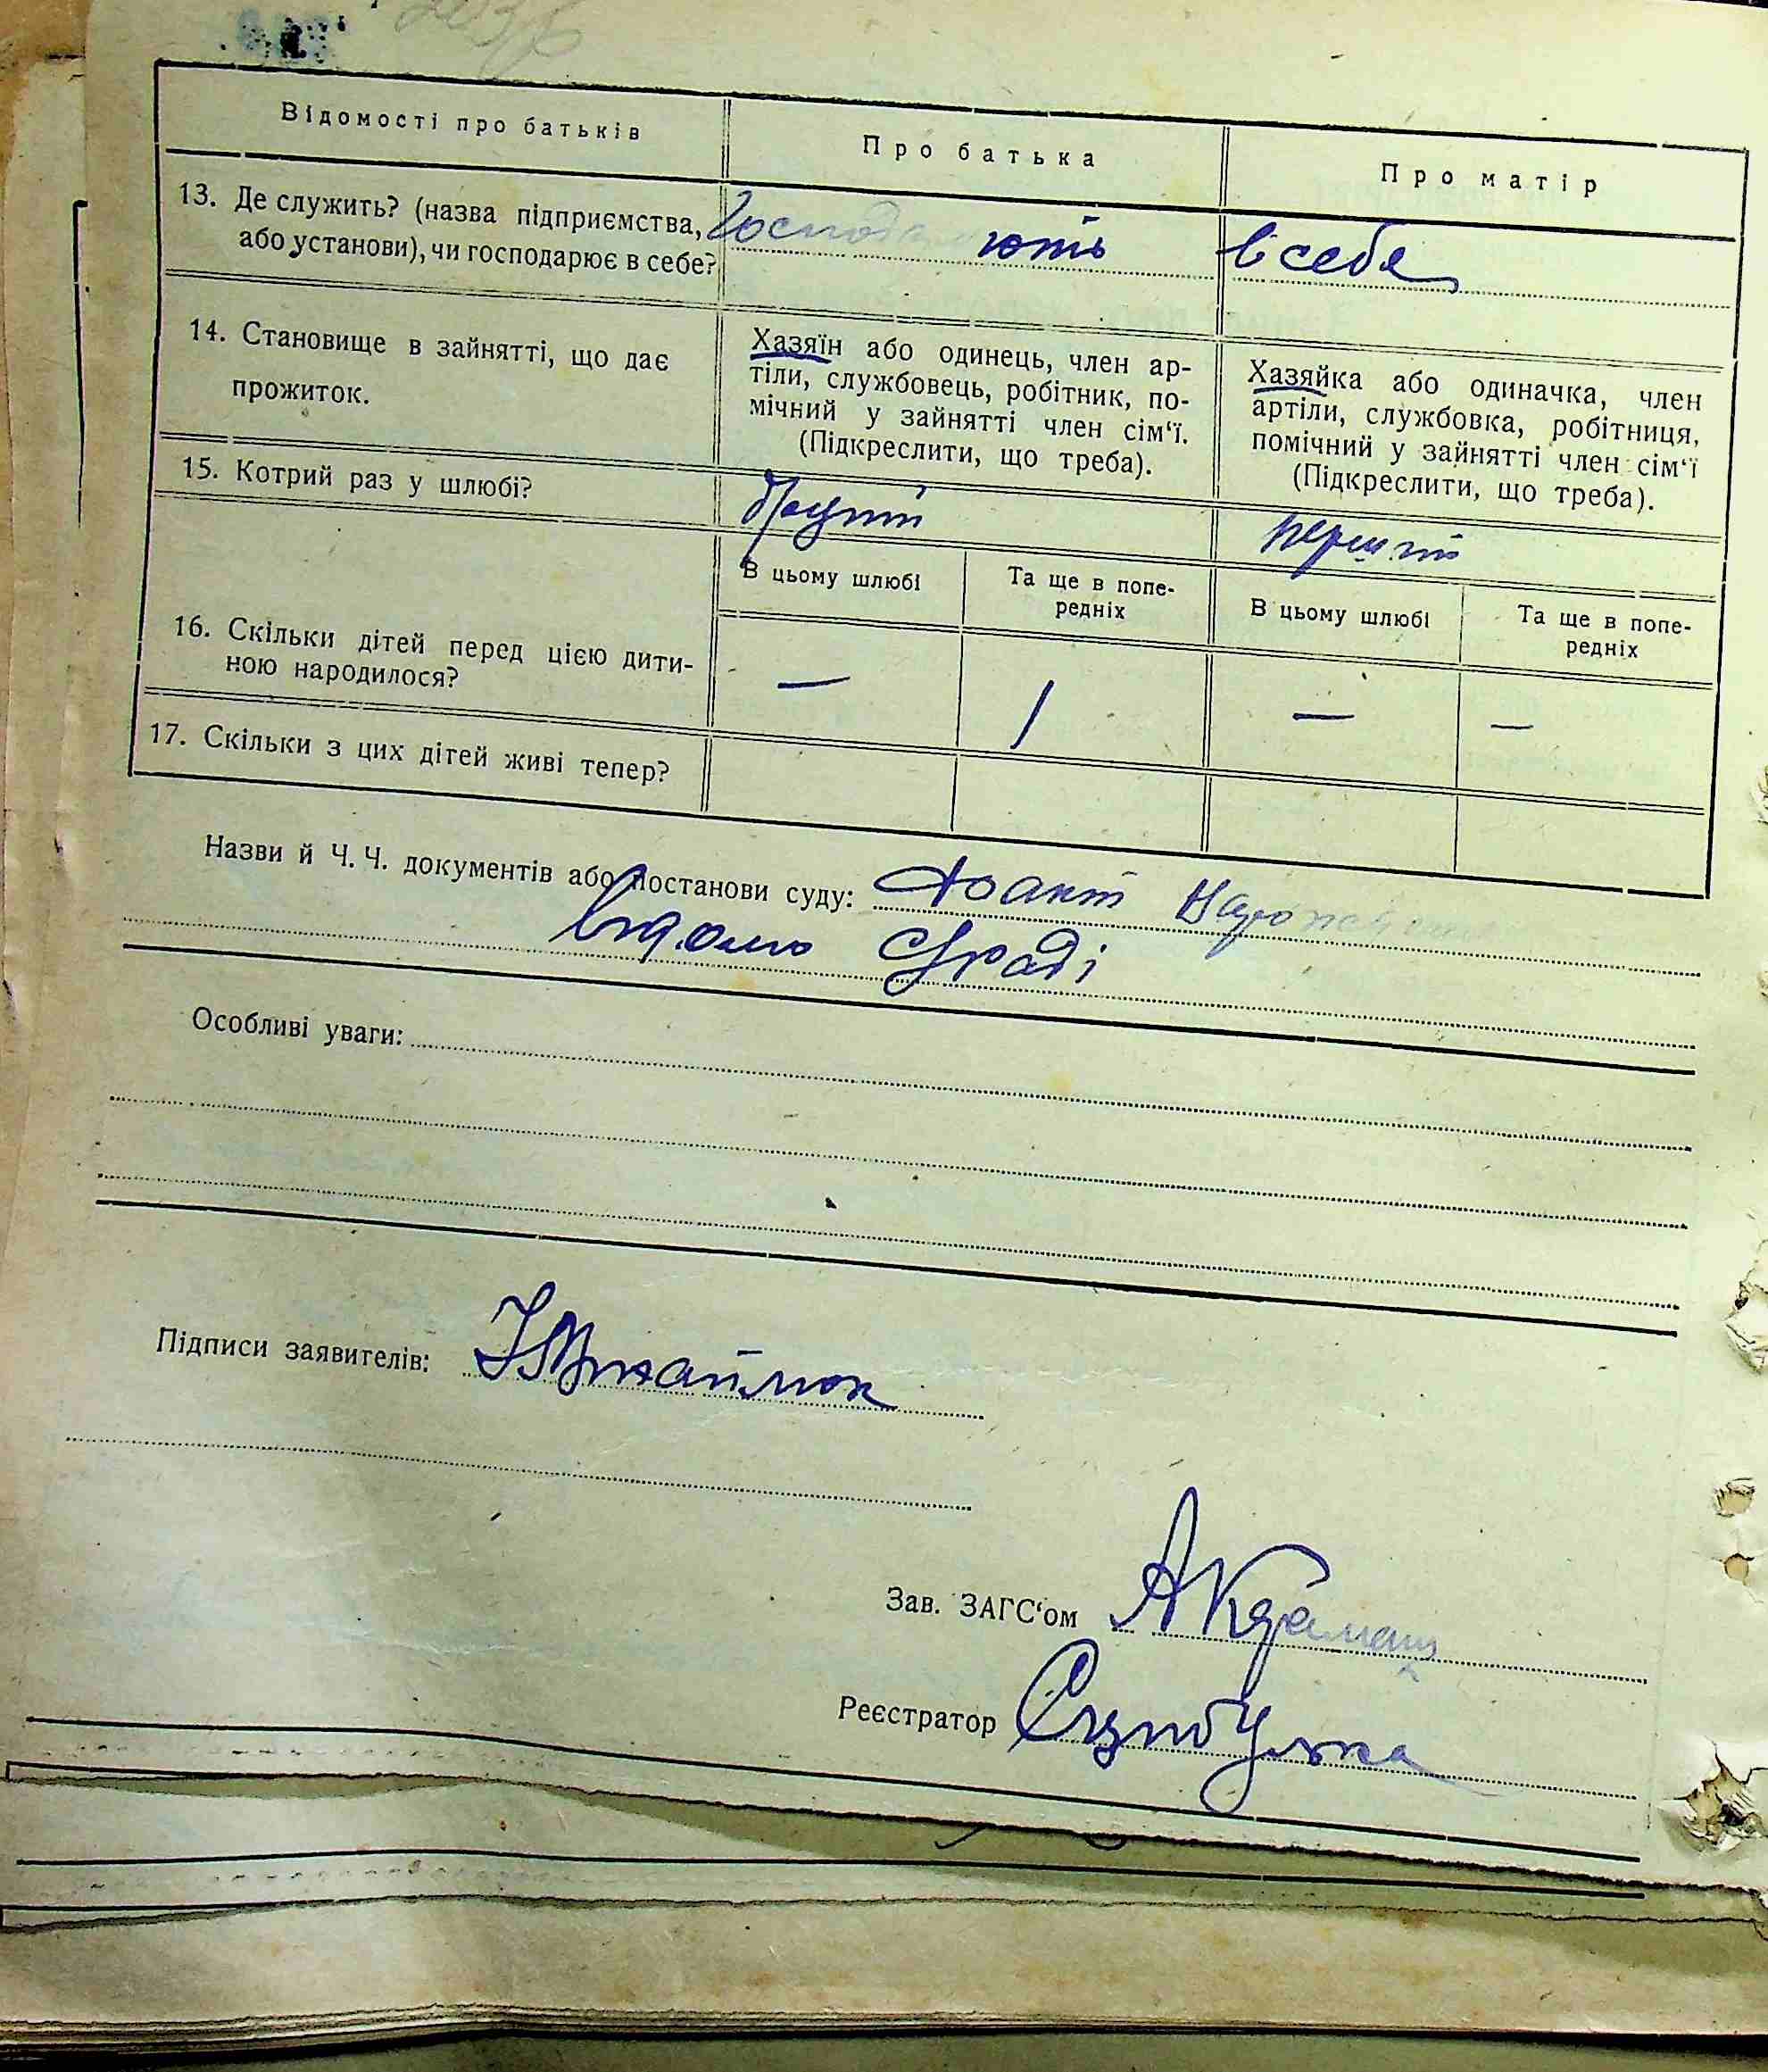 Відомості про батьків
Про батька
Про матір
13. Де служить? (назва підприємства,
або установи), чи господарює в себе?
Господарюють в себе
14. Становище в зайнятті, що дає
прожиток.
Хазяїн або одинець, член ар-
тіли, службовець, робітник, по-
мічний у зайнятті член сім‘ї.
(Підкреслити, що треба).
Хазяйка або одиначка, член
артіли, службовка, робітниця,
помічний у зайнятті член сім‘ї
(Підкреслити, що треба).
15. Котрий раз у шлюбі?
другий
перший
16. Скільки дітей перед цією дити-
ною народилося?
В цьому шлюбі
Та ще в попе-
редніх
В цьому шлюбі
Та ще в попе-
редніх
—
1
—
—
17. Скільки з цих дітей живі тепер?
Назви й Ч. Ч. документів або постанови суду:
відомо С/раді
Особливі уваги:
Підписи заявителів:
Зав. ЗАГС‘ом
Реєстратор